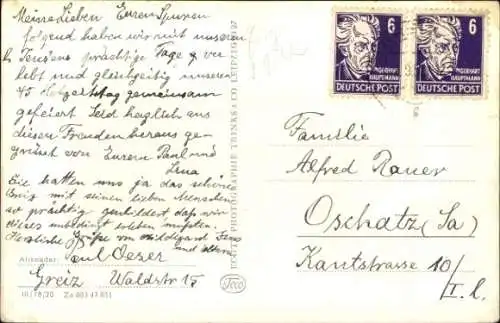 Meine Lieben Euren Spuren
folgend haben wir mit unseren
prächtige Tage ver
lebt und gleichzeitig unseren
45 Hochzeitstag gemeinsam
gefeiert Seid herzlich aus
diesen Freuden heraus ge-
grüsst von Eurem Paul und
Lena
Sie hatten uns ja das schöne
Greiz mit seinen lieben Menschen
so prächtig geschildert, daß wir
dieses unbedingt erleben mußten.
Herzliche Grüße von Hildegard
und Eltern
Absender: Paul Oeser
Greiz Waldstr 15
III/18/20 Zo 603
ECHTE PHOTOGRAPHIE TRINKS & CO. LEIPZIG
Trico
6
GERHART
HAUPTMANN
DEUTSCHE POST
6
GERHART
HAUPTMANN
DEUTSCHE POST
Familie
Alfred Rauer
Oschatz (Sa)
Kantstrasse 10/
I. l.